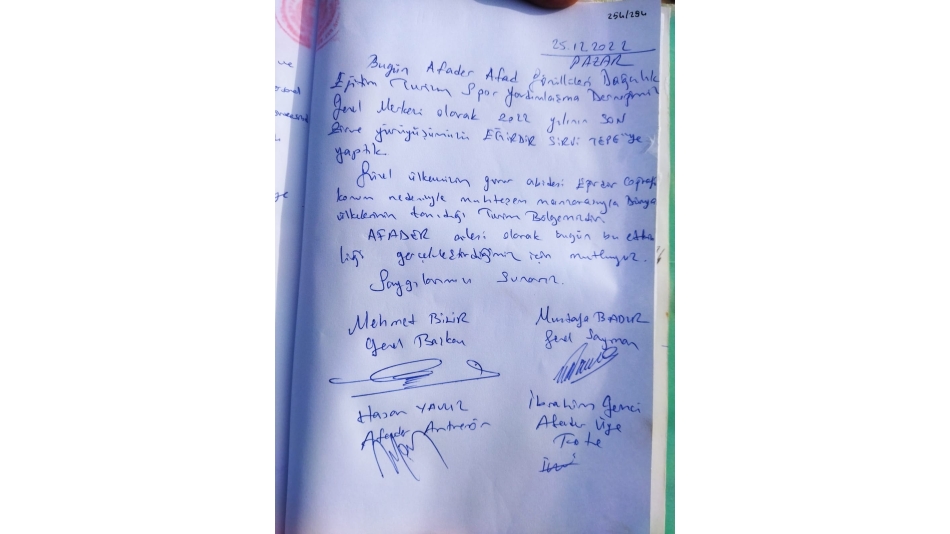 254/294
25.12.2022
PAZAR
Bugün Afader Afad Gönülleri Dağcılık
Eğitim Turizm Spor Yardımlaşma Derneğimiz
Genel Merkezi olarak 2022 yılının SON
Zirve yürüyüşümüzün EĞİRDİR SİVRİ TEPE'ye
yaptık.
Güzel ülkemizin gurur abidesi Coğrafi
konum nedeniyle muhteşem manzarasıyla Dünya
ülkelerinin tanıdığı Turizm Bölgemizdir.
AFADER ailesi olarak bugün bu etkin
liği gerçekleştirdiğimiz için mutluyuz.
Saygılarımızı Sunarız.
Mehmet
Genel Başkan
Mustafa BADUR
Genel Sayman
Hasan YAVUZ
Afader Antrenör
İbrahim
Afader Üye